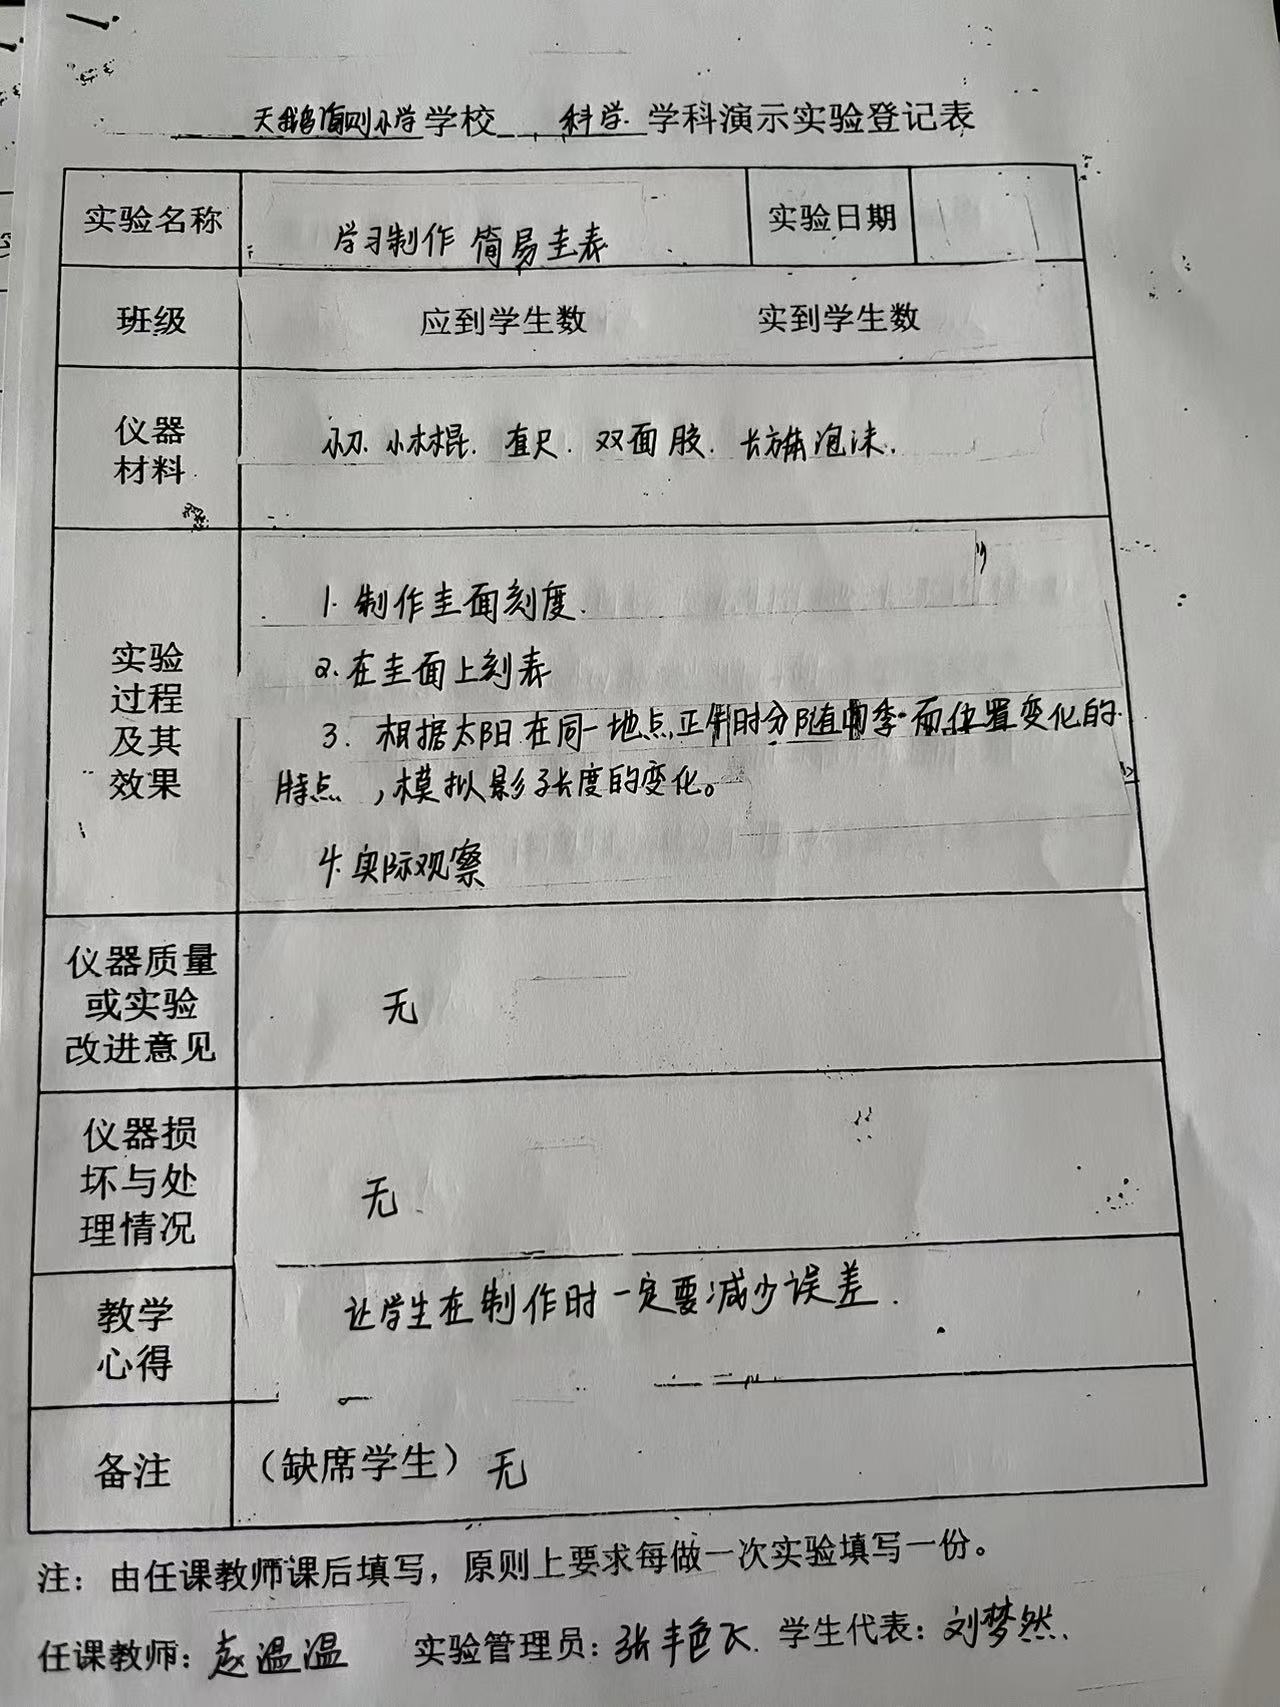 小学学校 科学 学科演示实验登记表
实验名称 学习制作 简易圭表 实验日期
班级 应到学生数 实到学生数
仪器
材料
小刀. 小木棍. 直尺. 双面胶. 长方体泡沫.
实验
过程
及其
效果
1. 制作圭面刻度.
2. 在圭面上刻表
3. 根据太阳在同一地点正午时分随四季而位置变化的
特点,模拟影子长度的变化。
4. 实际观察
仪器质量
或实验
改进意见
无
仪器损
坏与处
理情况
无
教学
心得
让学生在制作时一定要减少误差.
备注 (缺席学生) 无
注：由任课教师课后填写，原则上要求每做一次实验填写一份。
任课教师: 赵温温 实验管理员: 张艳飞. 学生代表: 刘梦然.